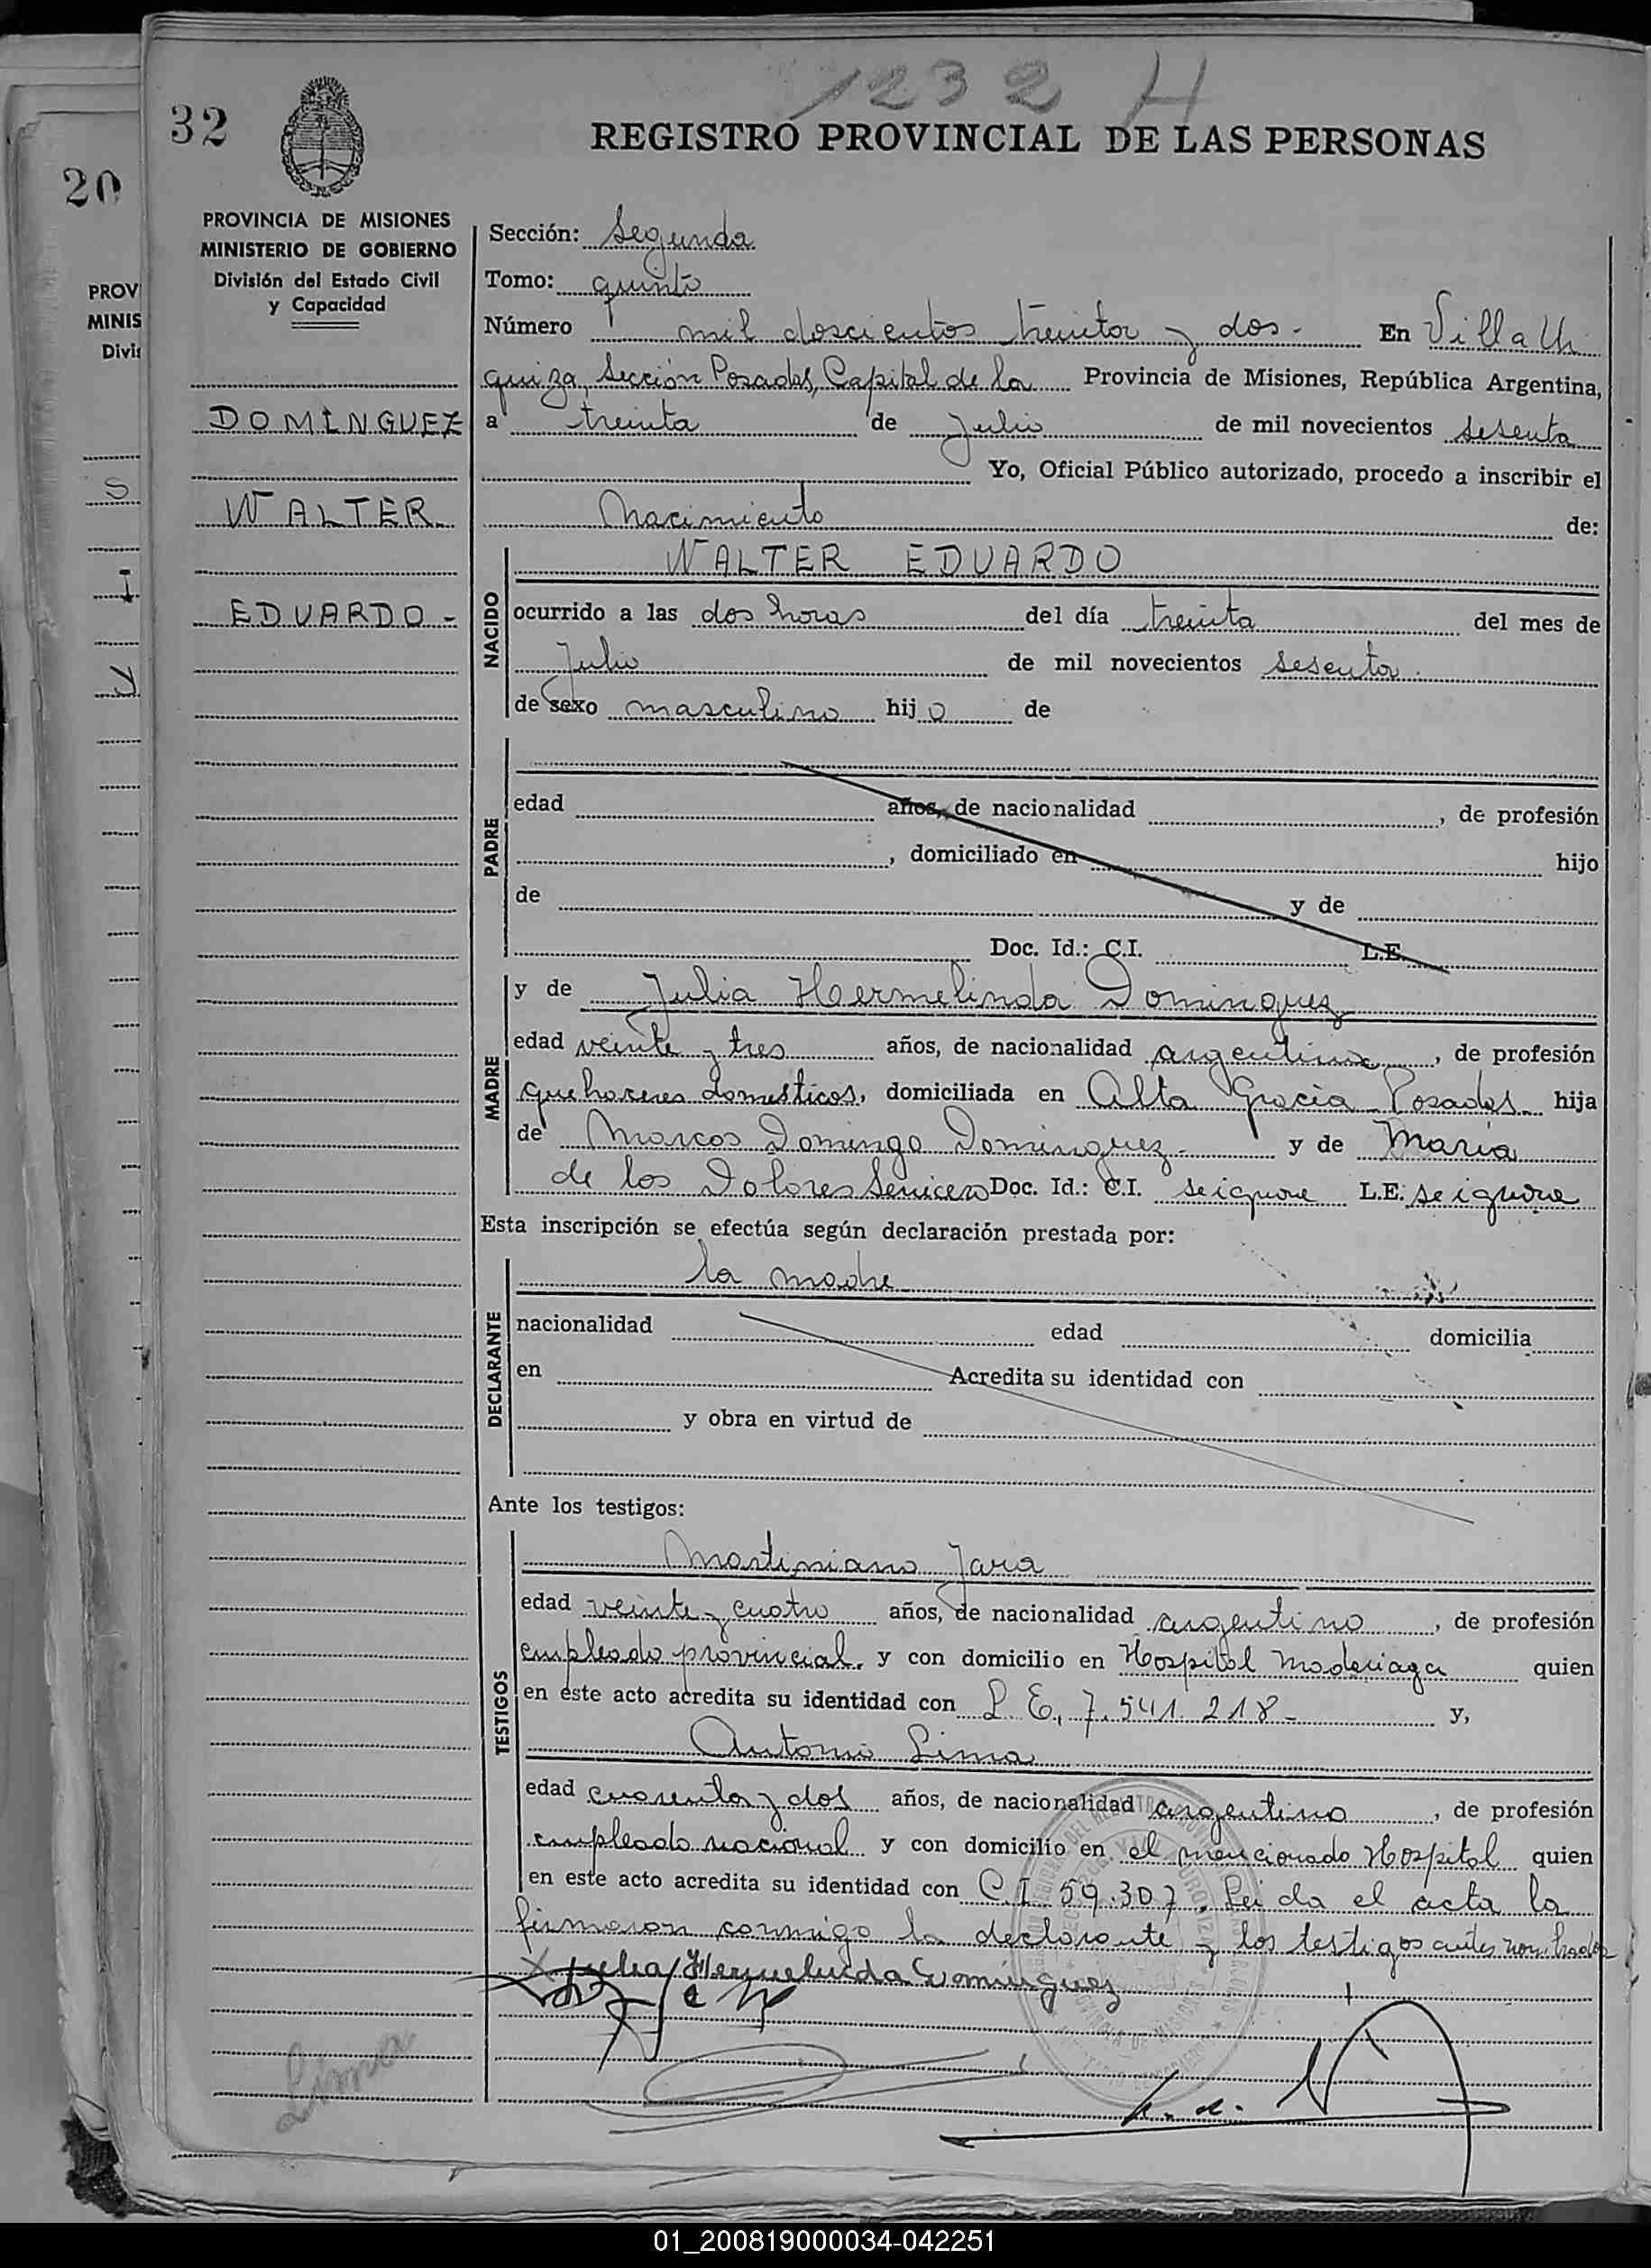 1232 H
32
REGISTRO PROVINCIAL DE LAS PERSONAS
20
PROVINCIA DE MISIONES
MINISTERIO DE GOBIERNO
División del Estado Civil
y Capacidad
PROV
MINIS
Divis
DOMINGUEZ
WALTER
EDUARDO -
Sección: Segunda
Tomo: quinto
Número mil doscientos treinta y dos - En Villa Ur
quiza, Sección Posadas, Capital de la Provincia de Misiones, República Argentina,
a treinta de Julio de mil novecientos sesenta
Yo, Oficial Público autorizado, procedo a inscribir el
Nacimiento de:
NACIDO
WALTER EDUARDO
ocurrido a las dos horas del día treinta del mes de
Julio de mil novecientos sesenta.
de sexo masculino hijo de
PADRE
edad años, de nacionalidad , de profesión
, domiciliado en hijo
de y de
Doc. Id.: C.I. L.E.
MADRE
y de Julia Hermelinda Dominguez
edad veinte y tres años, de nacionalidad argentina, de profesión
quehaceres domésticos, domiciliada en Alta Gracia Posadas hija
de Marcos Domingo Dominguez - y de María
de los Dolores Doc. Id.: C.I. se ignora L.E. se ignora
Esta inscripción se efectúa según declaración prestada por:
DECLARANTE
la madre
nacionalidad edad domicilia
en Acredita su identidad con
y obra en virtud de
Ante los testigos:
TESTIGOS
Martiniano Jara
edad veinte y cuatro años, de nacionalidad argentino, de profesión
empleado provincial, y con domicilio en Hospital Madariaga quien
en este acto acredita su identidad con L.E. 7.541.218 - y,
Antonio Lima
edad cuarenta y dos años, de nacionalidad argentino, de profesión
empleado nacional y con domicilio en el mencionado Hospital quien
en este acto acredita su identidad con C.I. 59.307. Leida el acta la
firmaron conmigo la declarante y los testigos antes nombrados
X Julia Hermelinda Dominguez
Lima
01_200819000034-042251